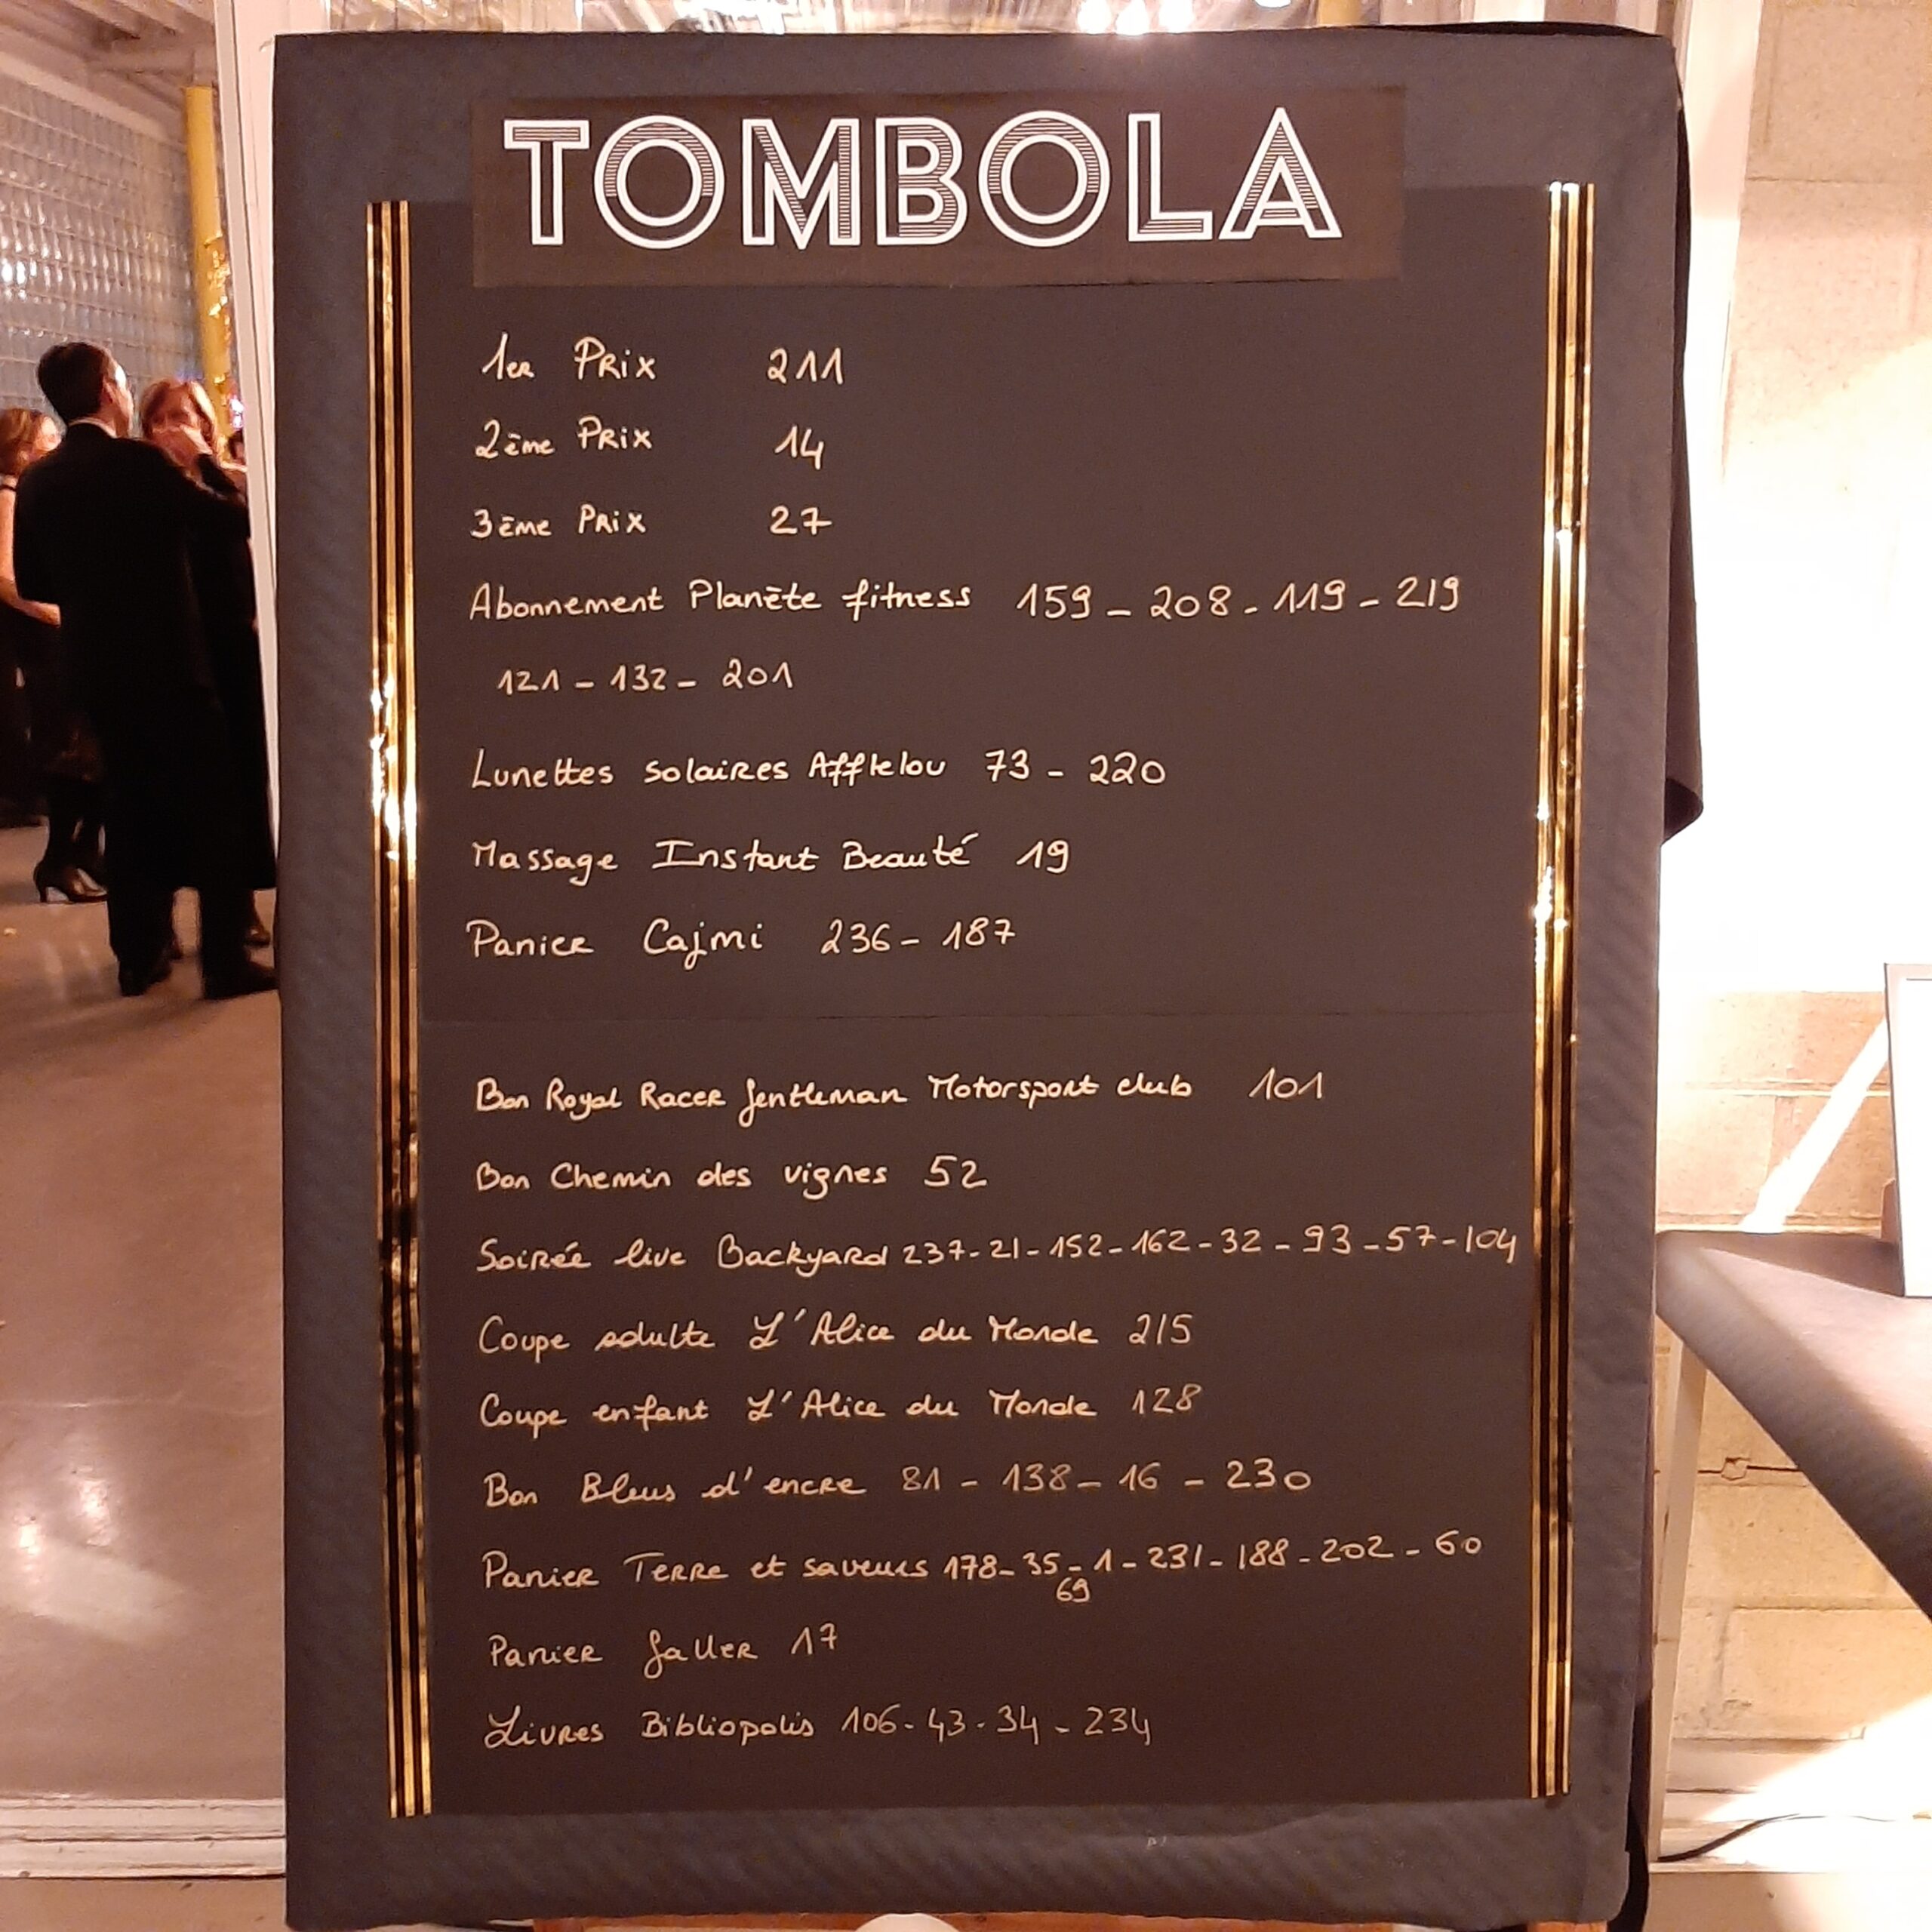 TOMBOLA
1er Prix 211
2ème Prix 14
3ème Prix 27
Abonnement Planète fitness 159 - 208 - 119 - 219
121 - 132 - 201
Lunettes solaires Afflelou 73 - 220
Massage Instant Beauté 19
Panier Cajmi 236 - 187
Bon Royal Racer Gentleman Motorsport club 101
Bon Chemin des vignes 52
Soirée live Backyard 237 - 21 - 152 - 162 - 32 - 93 - 57 - 104
Coupe adulte L'Alice du Monde 215
Coupe enfant L'Alice du Monde 128
Bon Bleus d'encre 81 - 138 - 16 - 230
Panier Terre et saveurs 178 - 35 - 1 - 231 - 188 - 202 - 60
69
Panier Galler 17
Livres Bibliopolis 106 - 43 - 34 - 234